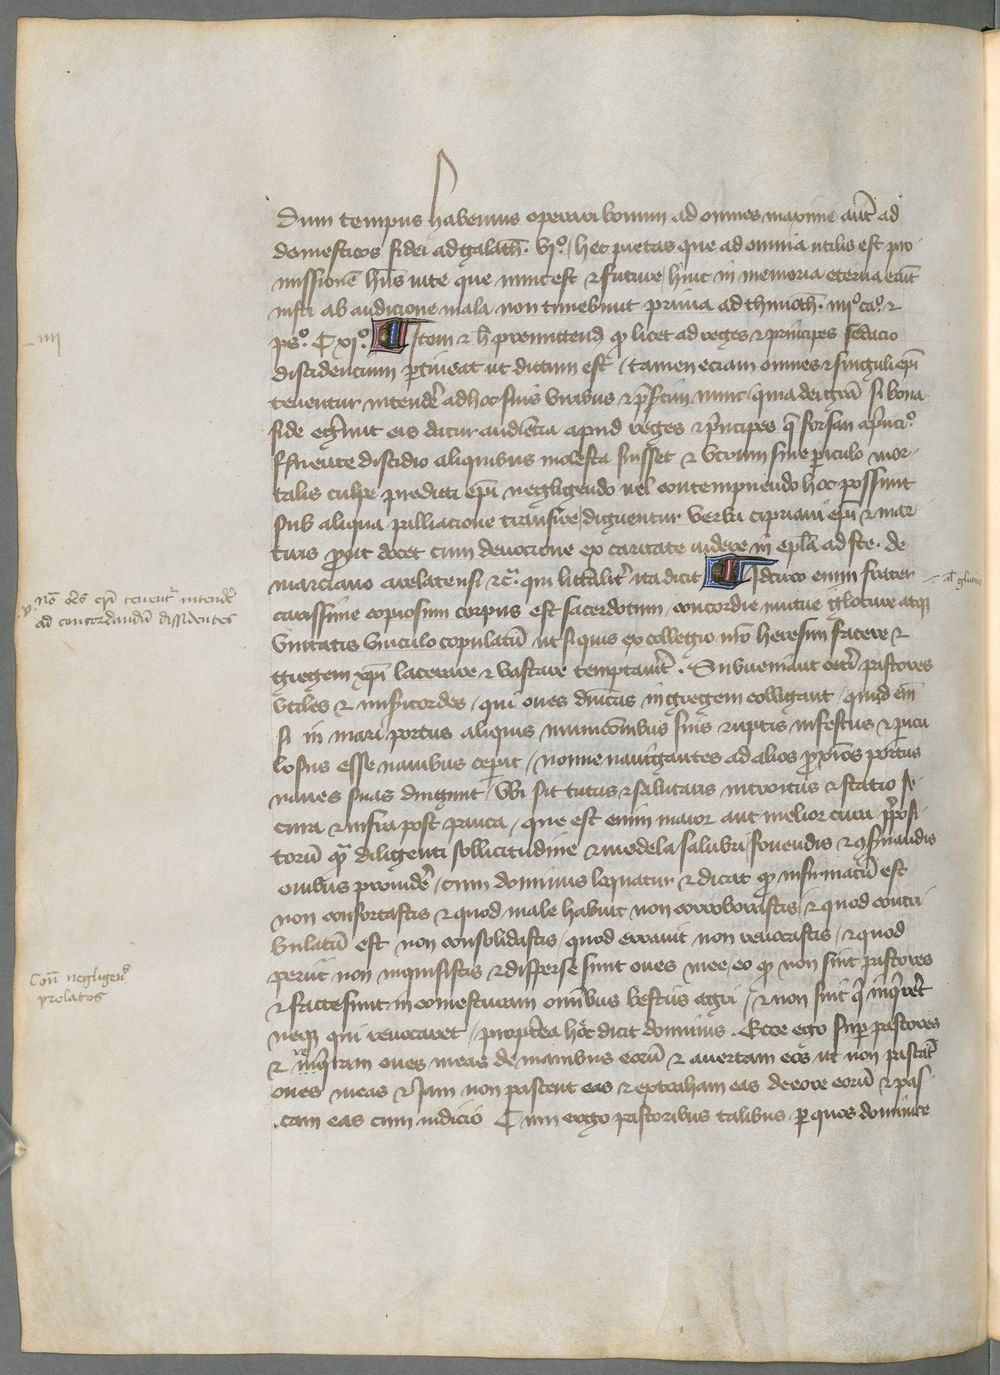 Dum tempus habemus operari bonum ad omnes maxime aut̄ ad
domesticos fidei ad galath̄. vjº. hec pietas que ad omnia utilis est pro
missionē hn̄s vite que nunc est et future hinc in memoria eterna erūt
iusti ab audicione mala non timebunt prima ad thimoth̄. iiijº caº. et
psº. Cxjº. Item et h̄ premittend̄ qd licet ad reges et principes sedacio
discidencium ꝑtineat ut dictum est / tamen eciam omnes et singuli ep̄i
tenentur intendēr ad hoc suis viribus et p̄sertim nunc quia dei gr̄a si bona
fide egerint eis datur audiēcia apud reges et p̄ncipes
feruente discidio aliquibus molesta fuisset et utrum sine ꝑiculo mor
talis culpe predicti ep̄i negligendo uel contempnendo hoc possunt
sub aliqua palliacione transire dignentur verba cipriani ep̄i et mar
tiris ꝓut docet cum deuocione ex caritate videre in ep̄la ad ste. de
marciano arelatensi etc̄. qui litt̄alit̄ ita dicit Idcirco enim frater
carissime copiosum corpus est sacerdotum / concordie mutue glotine atqꝫ
vnitatis vinculo copulatū ut si quis ex collegio nr̄o heresim facere et
gregem xp̄i lacerare et vastare temptauīt . Subueniant cet̄i pastores
vtiles et mīsericordes / qui oues dn̄icas in gregem colligant / quid em̄
si in mari portus aliquis municōnibus suis ruptis infestus et ꝑicu
losus esse nauibus ceperit / nonne nauigantes ad alios ꝓxīos portus
naues suas dirigunt / vbi sit tutus et salutaris introitus et statio se
cura et infra post pauca / que est enim maior aut melior cura p̄posi
torū qm̄ diligenti sollicitudine et medela salubri fouendis et ꝯseruandis
ouibus prouidēr / cum dominus loquatur et dicat qd infirmatū est
non confortastis et quod male habuit non corroborastis et quod contri
bulatū est non consolidastis / quod errauit non reuocastis / et quod
periit non inquisistis et disperse sunt oues mee eo qd non sint pastores
et facte sunt in comesturam omībus bestiis agri / et non fuit q̄ inq̄reret
neqꝫ qui reuocaret / propterea hec dicit dominus . Ecce ego suꝑ pastores
et req̄ram oues meas de manibus eorū et auertam eos ut non pascāt
oues meas et Iam non pascent eas et extraham eas de ore eorū et pas
cam eas cum iudicio Cum ergo pastoribus talibus ꝑ quos dominice
iiij
nō oēs ep̄i tenent᷑ intendēr
ad concordandū dissidentes
Con̄ negligen̄
prelatos
al̄ glutino